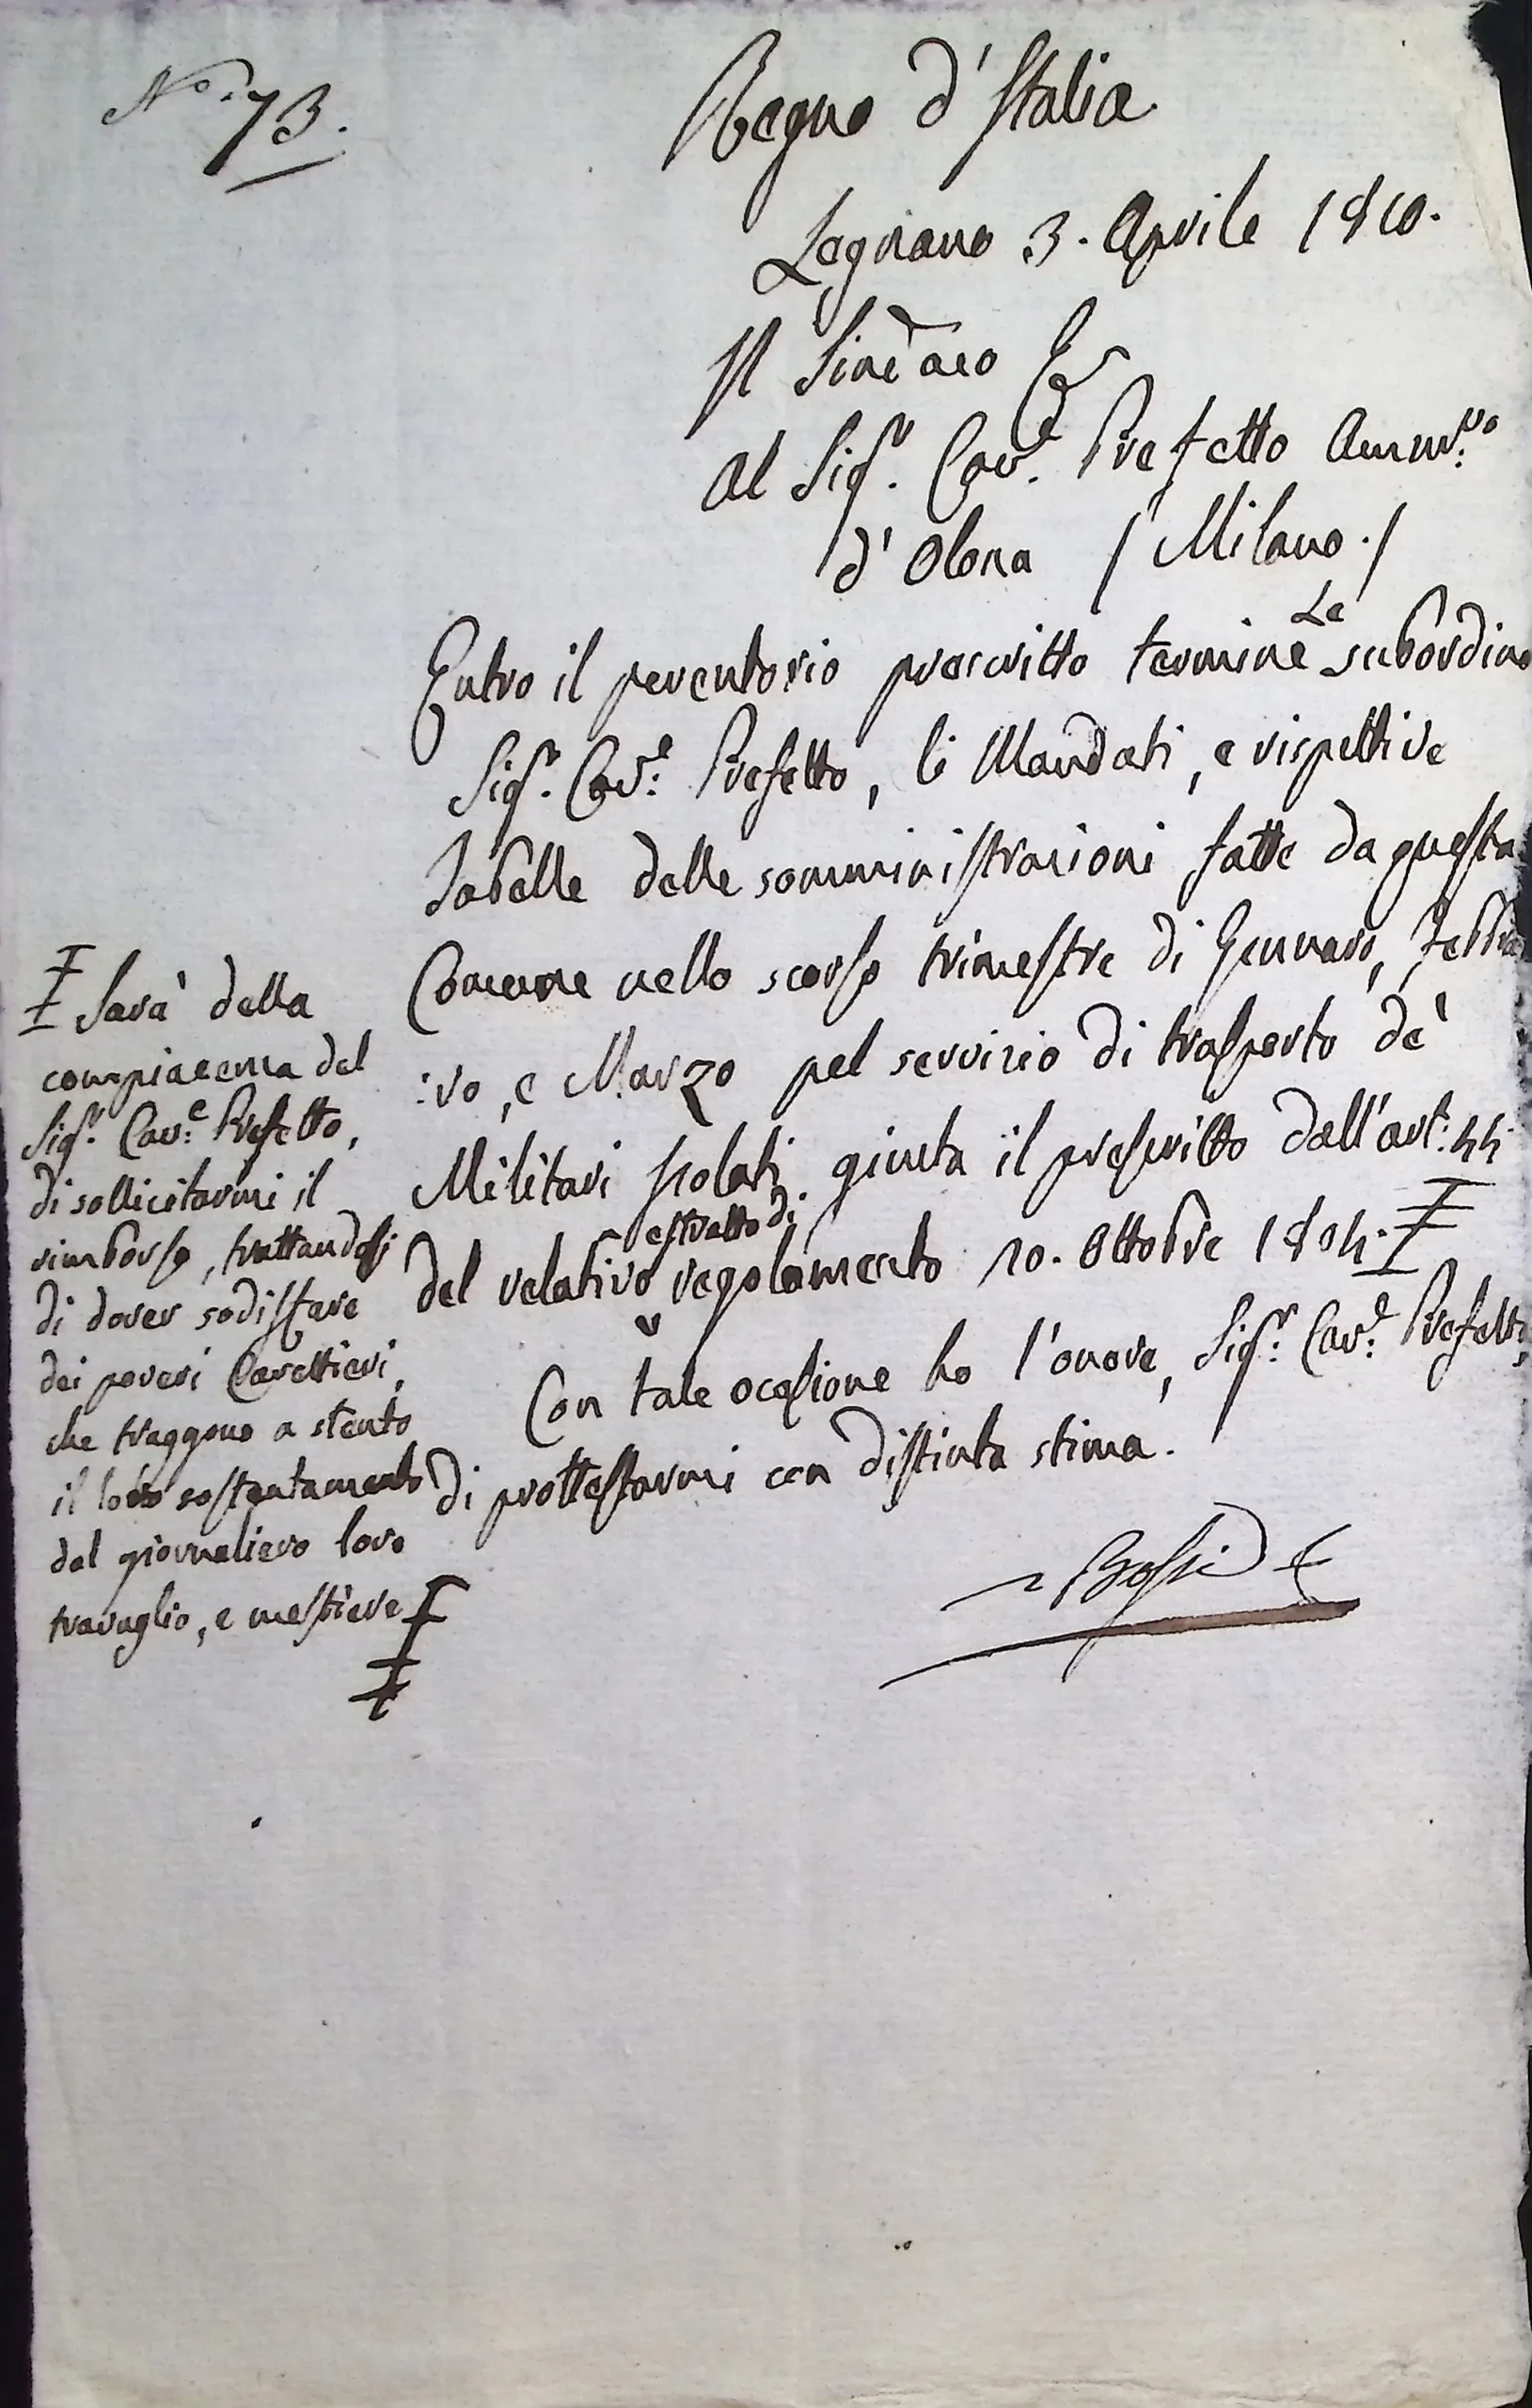 N.º 73.
Regno d'Italia
Legnano 3. Aprile 1810.
Il Sindaco
Al Sig.r Cav.e Prefetto Amm.vo
d'Olona / Milano. /
Entro il perentorio prescritto termine Le subordino
Sig.r Cav.e Prefetto, li Mandati, e rispettive
Tabelle delle somministrazioni fatte da questa
Comune nello scorso trimestre di Gennaro, Febbra
:ro, e Marzo pel servizio di trasporto de'
Militari isolati giusta il prescritto dall'art. 44.
del relativo estratto di regolamento 10. Ottobre 1804.
Con tale occasione ho l'onore, Sig.r Cav.e Prefetto,
di prottestarmi con distinta stima.
Bossi
Sarà della
compiacenza del
Sig.r Cav.e Prefetto,
di sollicitarmi il
rimborso, trattandosi
di dover sodisfare
dei poveri Carettieri,
che traggono a stento
il loro sostentamento
dal giornaliero loro
travaglio, e mestiere